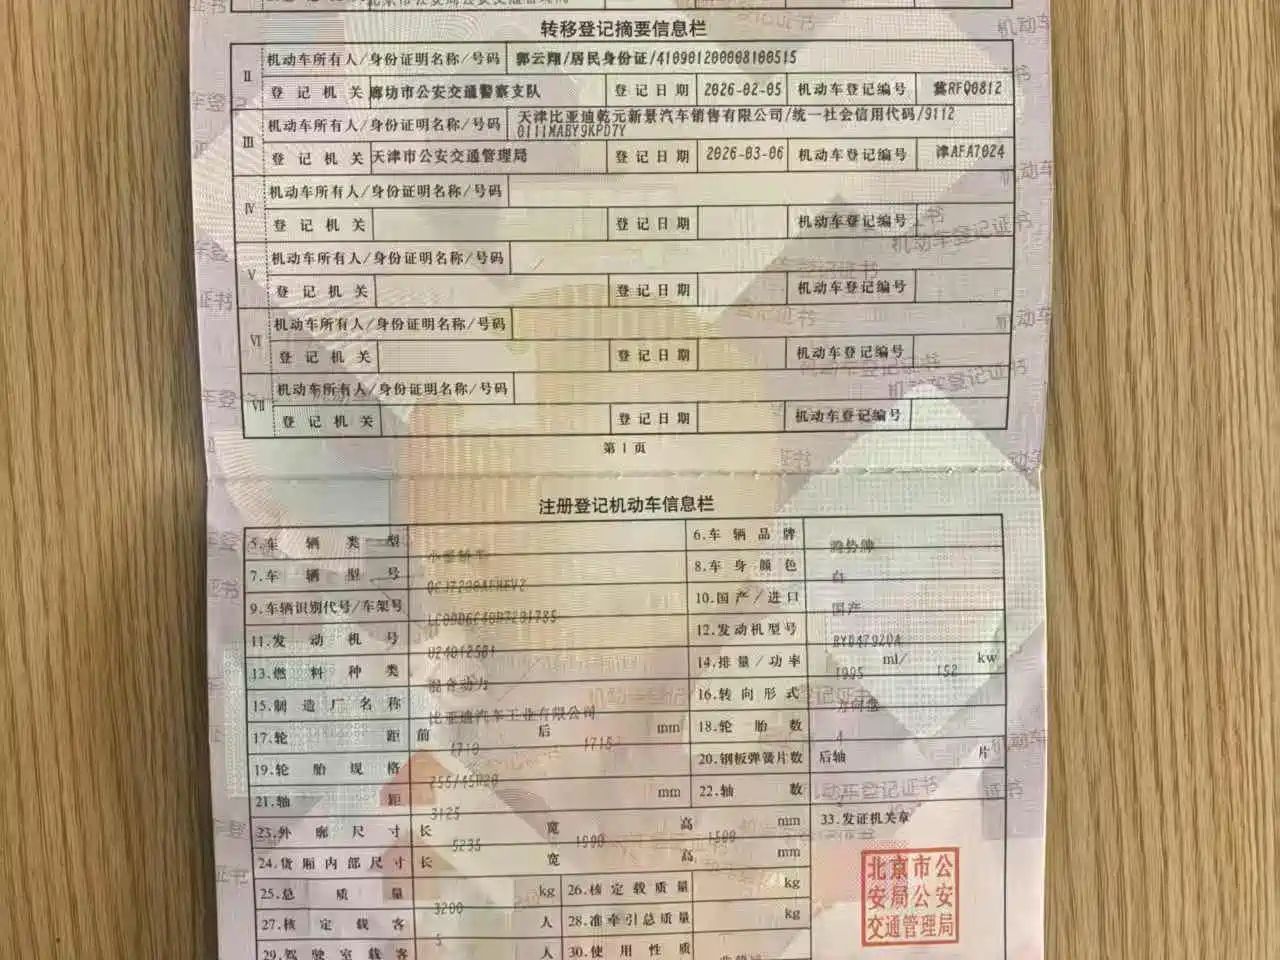 转移登记摘要信息栏
Ⅱ 机动车所有人/身份证明名称/号码 郭云翔/居民身份证/410901200008100515
登记机关 廊坊市公安交通警察支队 登记日期 2026-02-05 机动车登记编号 冀RFQ0812
Ⅲ 机动车所有人/身份证明名称/号码 天津比亚迪乾元新景汽车销售有限公司/统一社会信用代码/9112
0111MABY9KPD7Y
登记机关 天津市公安交通管理局 登记日期 2026-03-06 机动车登记编号 津AFA7024
Ⅳ 机动车所有人/身份证明名称/号码
登记机关 登记日期 机动车登记编号
Ⅴ 机动车所有人/身份证明名称/号码
登记机关 登记日期 机动车登记编号
Ⅵ 机动车所有人/身份证明名称/号码
登记机关 登记日期 机动车登记编号
Ⅶ 机动车所有人/身份证明名称/号码
登记机关 登记日期 机动车登记编号
第 1 页
注册登记机动车信息栏
5.车辆类型 小型轿车 6.车辆品牌 腾势牌
7.车辆型号 8.车身颜色 白
9.车辆识别代号/车架号 10.国产/进口 国产
11.发动机号 12.发动机型号
13.燃料种类 混合动力 14.排量/功率 1995 ml/ 152 kw
15.制造厂名称 比亚迪汽车工业有限公司 16.转向形式 方向盘
17.轮距 前 1710 后 1715 mm 18.轮胎数 4
19.轮胎规格 255/45R20 20.钢板弹簧片数 后轴 片
21.轴距 3125 mm 22.轴数
23.外廓尺寸 长 5235 宽 1990 高 1500 mm 33.发证机关章
24.货厢内部尺寸 长 宽 高 mm
25.总质量 3200 kg 26.核定载质量 kg
27.核定载客 5 人 28.准牵引总质量 kg
29.驾驶室载客 人 30.使用性质
北京市公
安局公安
交通管理局